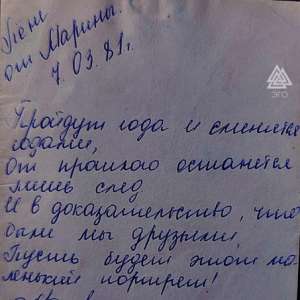 Лене
от Марины.
7. 03. 81 г.
ЭГО
Пройдут года и сменятся
годами,
От прошлого останется
лишь след
И в доказательство, что
были мы друзьями
Пусть будет этот ма-
ленький портрет!